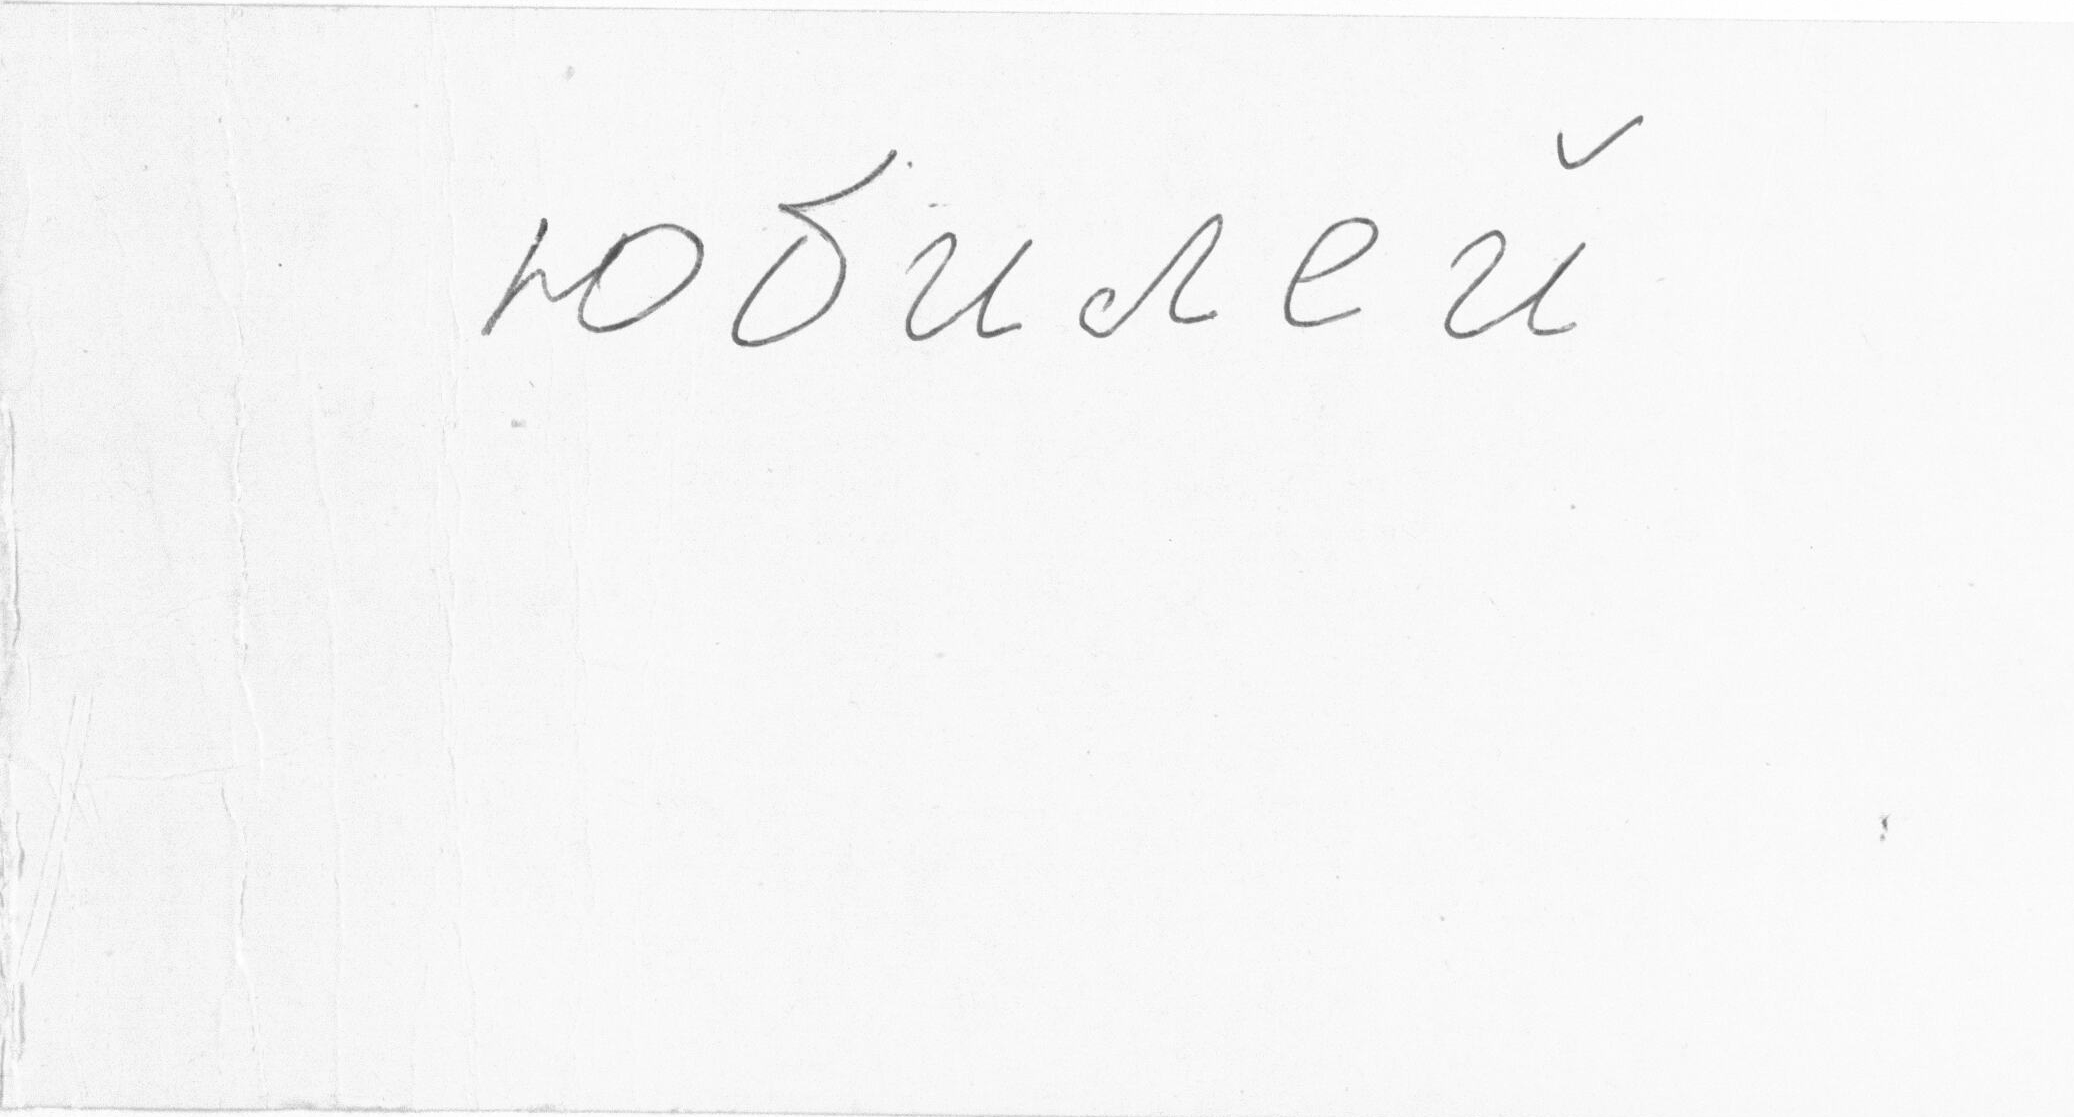 юбилей